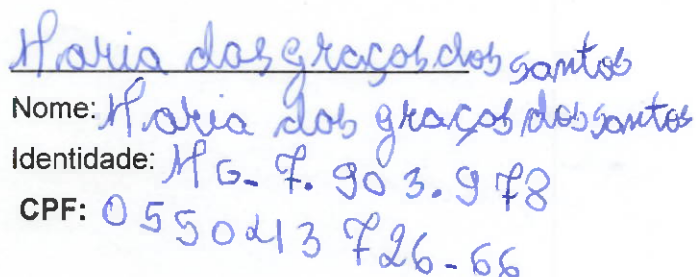 Maria das graças dos santos
Nome: Maria das graças dos santos
Identidade: MG-7.903.978
CPF: 0550213726-66